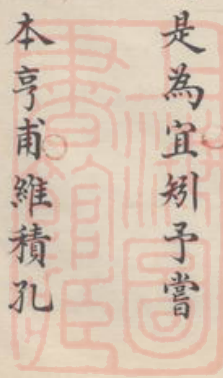 是為宜矧予嘗
本亨甫維積孔